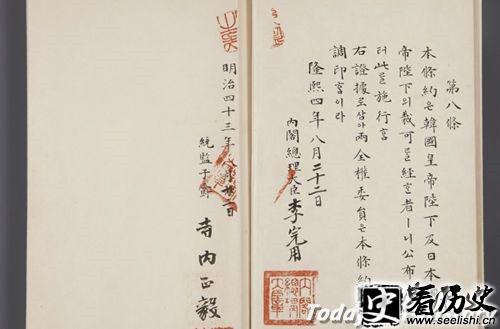 第八條
本條約은韓國皇帝陛下及日本
帝陛下의裁可를經ᄒᆞᆫ者ㅣ니公布
터此를施行홈
右證據로삼아兩全權委員은本條約
調印홈이라
隆熙四年八月二十二日
內閣總理大臣 李完用
內閣總理大臣章
明治四十三年八月廿二日
統監子爵 寺內正毅
Toda
史
看历史
www.seelishi.cn